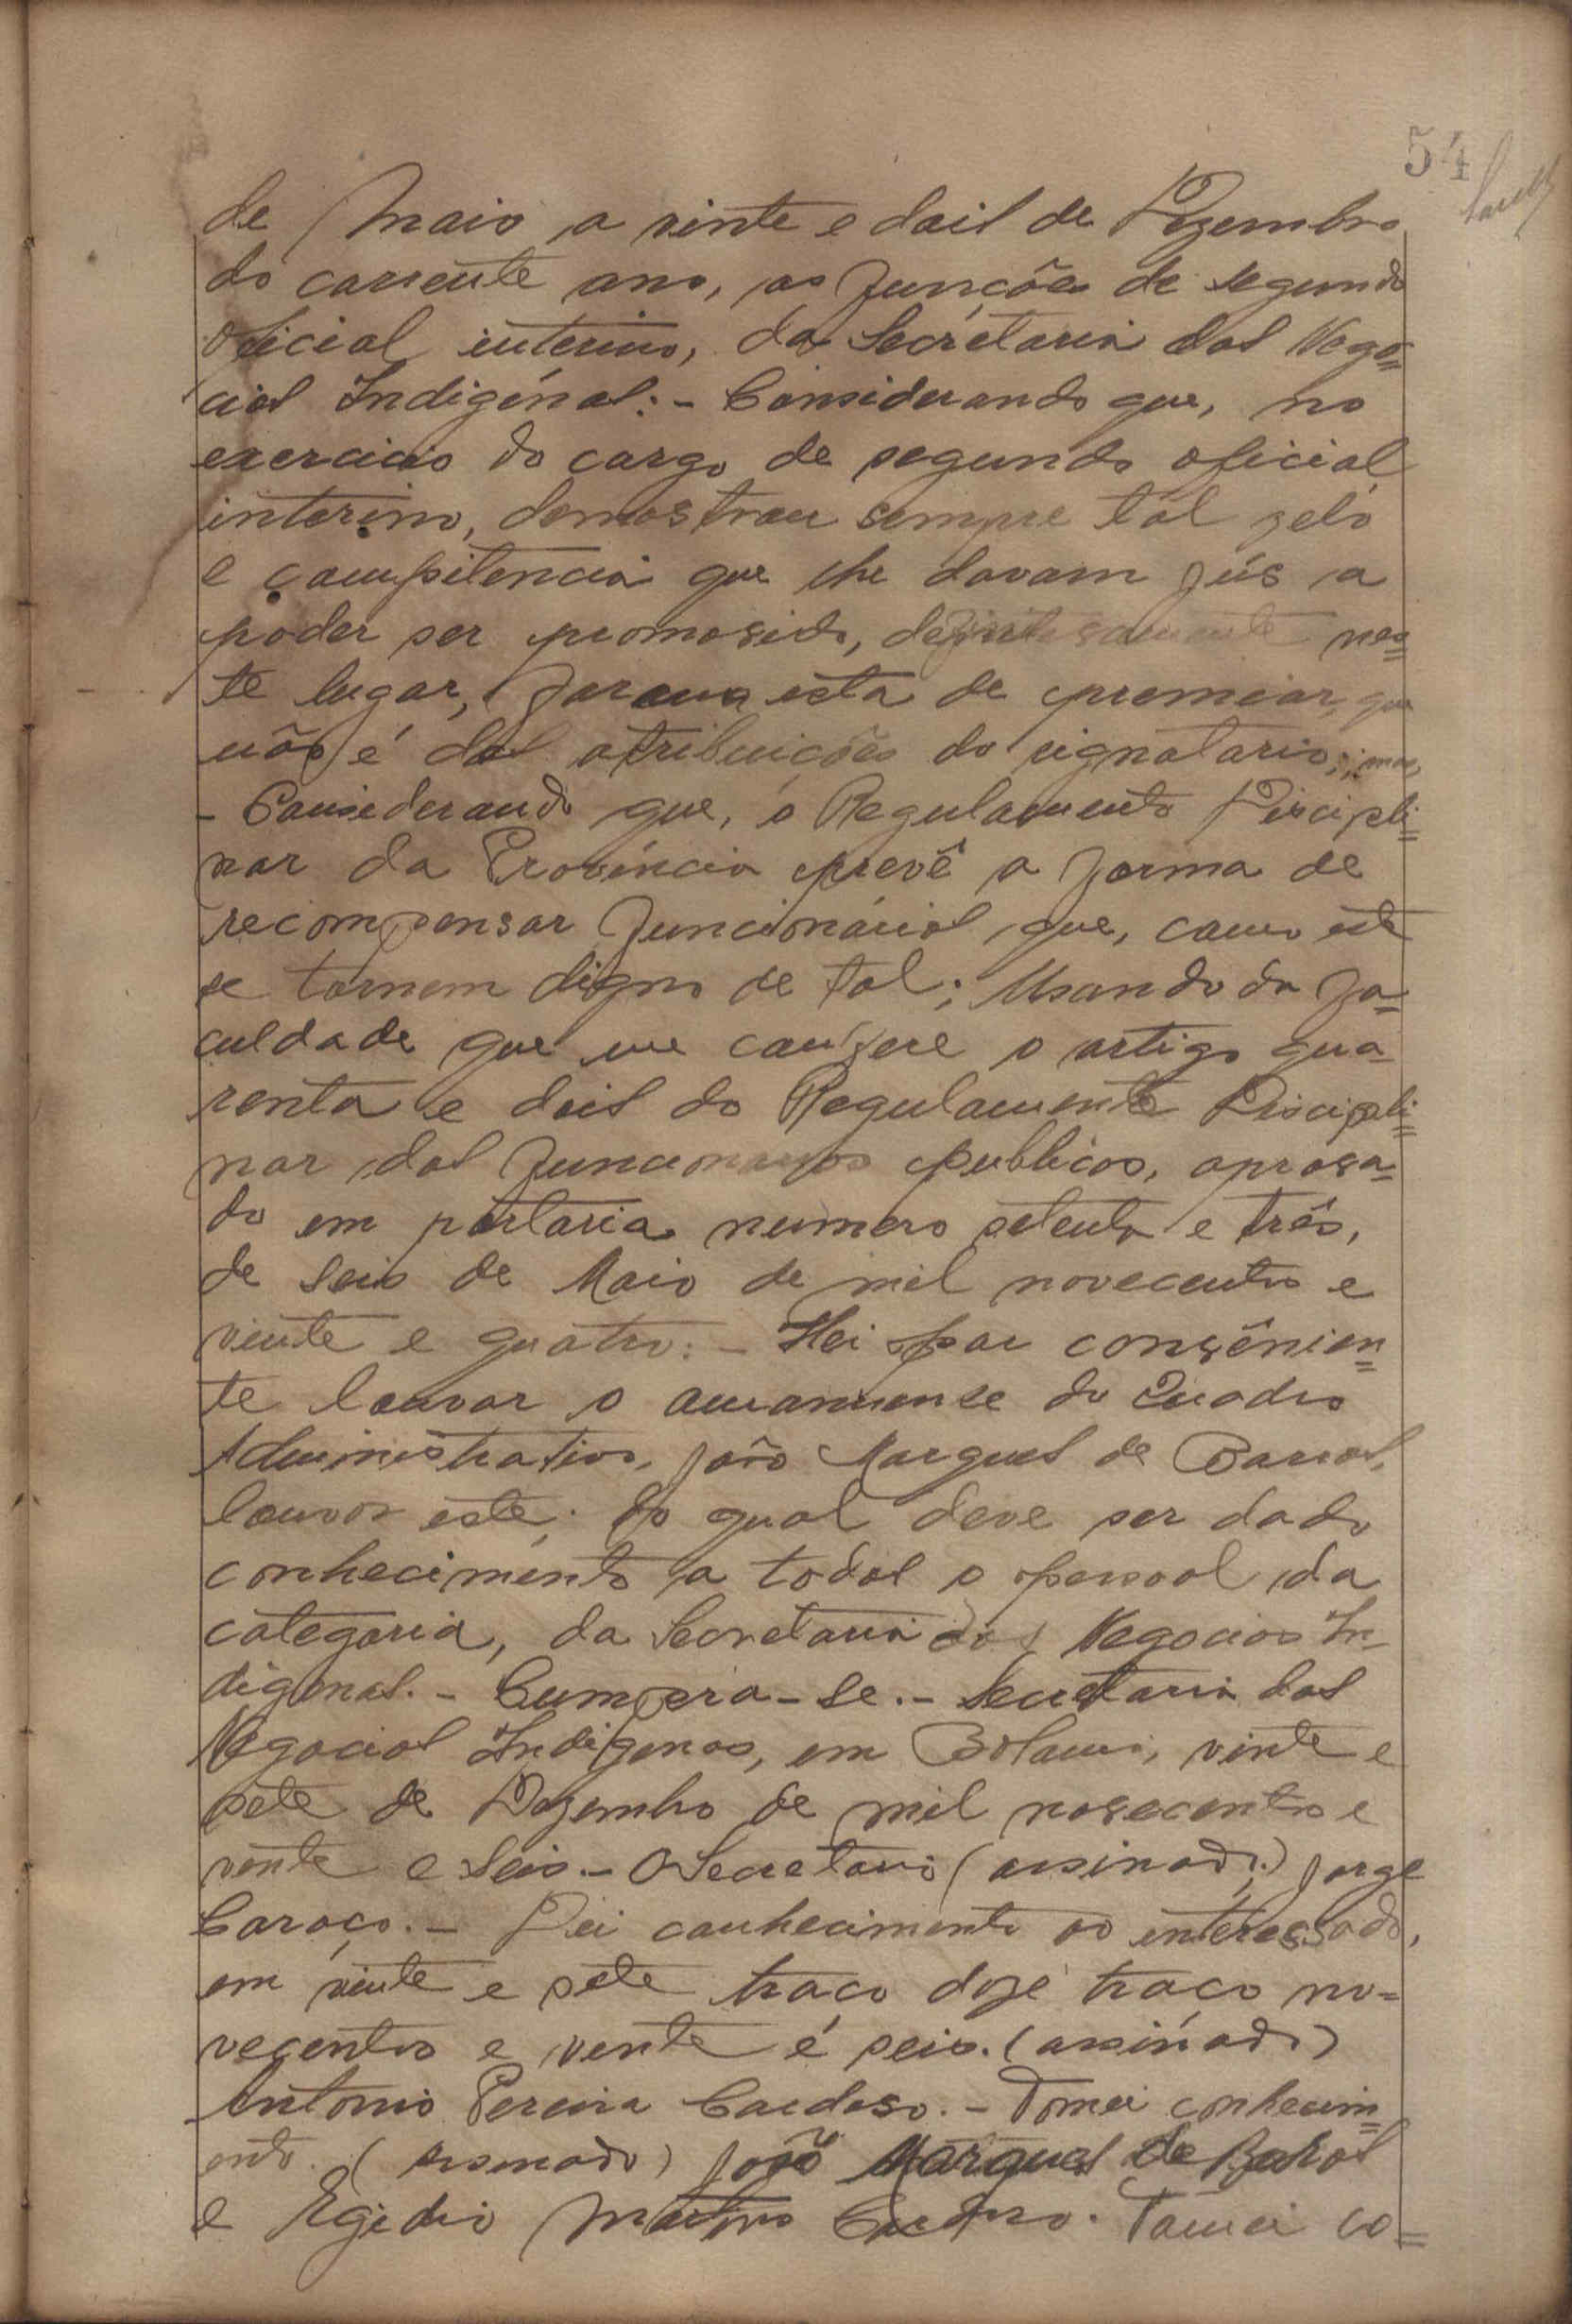 54
de Maio a vinte e dois de Dezembro
do corrente ano, as funções de segundo
oficial interino, da Secretaria dos Nego=
cios Indigénas:- Considerando que, no
exercicio do cargo de segundo oficial
interino, demostrou sempre tal zelo
e competencia que lhe davam jús a
poder ser promovido, definitivamente nes=
te lugar, forma esta de premiar, que
não é das atribuições do signatario; mas,
- Considerando que, o Regulamento Discipli=
nar da Província prevê a forma de
recompensar funcionários que, como este
se tornem digno de tal; Usando da fa=
culdade que me confere o artigo qua-
renta e dois do Regulamento Discipli=
nar dos funcionarios publicos, aprova-
do em portaria numero setenta e três,
de seis de Maio de mil novecentos e
vinte e quatro:- Hei por convênien=
te louvar o amanuense do Quadro
Administrativo, João Marques de Barros,
louvor este, do qual deve ser dado
conhecimento a todos o pessoal da
categoria, da Secretaria dos Negocios In-
digenas.- Cumpra-se.- Secretaria dos
Negocios Indigenas, em Bolama, vinte e
sete de Dezembro de mil novecentos e
vinte e seis.- O Secretario (assinado,) Jorge
Caroço.- Dei conhecimento ao interessado,
em vinte e sete traço doze traço no=
vecentos e vinte é seis. (assinado)
Antonio Pereira Cardoso.- Tomei conhecim=
ento. (assinado) João Marques de Barros
e Egidio Martins Castro. Tomei co=